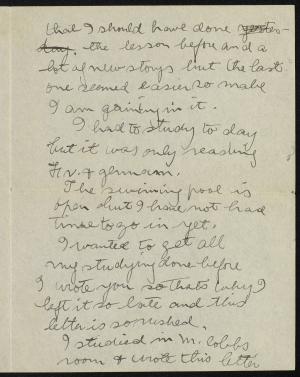 that I should have done yester-
day. the lesson before and a
lot of new storys but the last
one seemed easier so mabe
I am gaining in it.
I had to study to day
but it was only reading
Fr. & germann.
The swimming pool is
open but I have not had
time to go in yet.
I wanted to get all
my studying done before
I wrote you so thats why I
left it so late and this
letter is so rushed.
I studied in M. Cobbs
room & wrote this letter